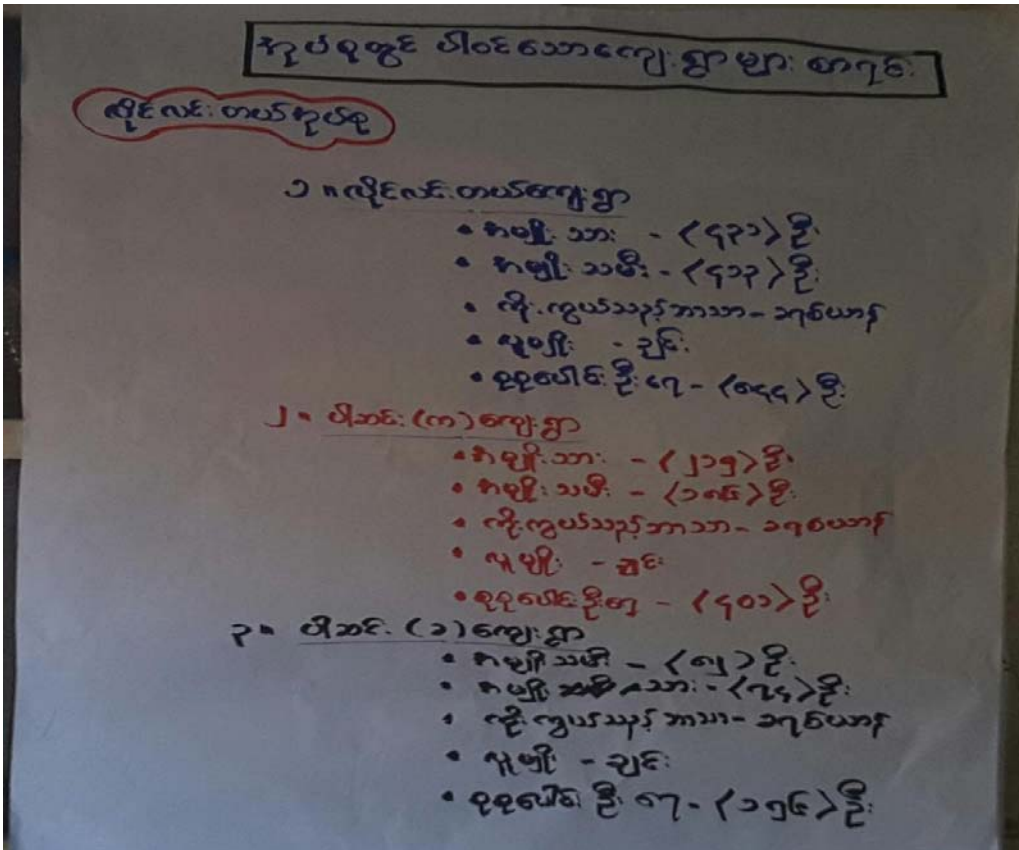 အုပ်စုတွင် ပါဝင်သောကျေးရွာများ စာရင်း
လိုင်လင်းတယ်အုပ်စု
၁။ လိုင်လင်းတယ်ကျေးရွာ
• အမျိုးသား - (၄၃၁) ဦး
• အမျိုးသမီး - (၄၁၃) ဦး
• ကိုးကွယ်သည့်ဘာသာ - ခရစ်ယာန်
• လူမျိုး - ချင်း
• စုစုပေါင်းဦးရေ - (၈၄၄) ဦး
၂။ ပါဆင်း (က) ကျေးရွာ
• အမျိုးသား - (၂၁၅) ဦး
• အမျိုးသမီး - (၁၈၆) ဦး
• ကိုးကွယ်သည့်ဘာသာ - ခရစ်ယာန်
• လူမျိုး - ချင်း
• စုစုပေါင်းဦးရေ - (၄၀၁) ဦး
၃။ ပါဆင်း (ခ) ကျေးရွာ
• အမျိုးသမီး - (၈၂) ဦး
• အမျိုးသား - (၇၄) ဦး
• ကိုးကွယ်သည့်ဘာသာ - ခရစ်ယာန်
• လူမျိုး - ချင်း
• စုစုပေါင်းဦးရေ - (၁၅၆) ဦး